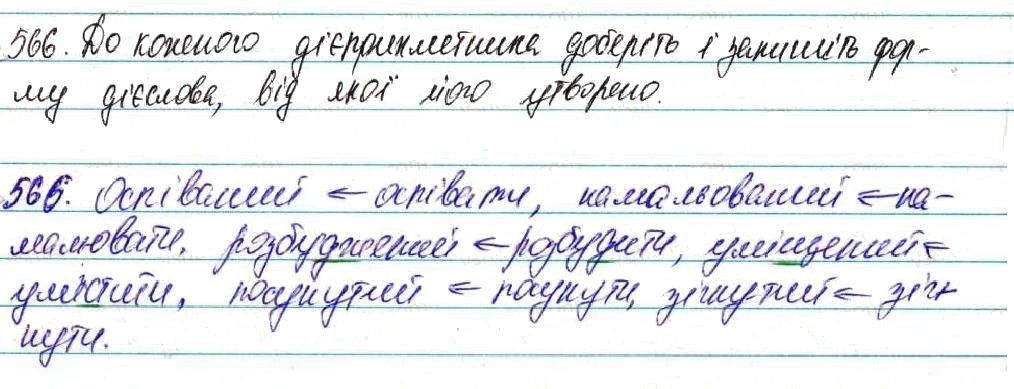 566. До кожного дієприкметника доберіть і запишіть фор-
му дієслова, від якої його утворено.
566. Оспіваний ← оспівати, намальований ← на-
малювати, розбуджений ← розбудити, уміщений ←
умістити, посунутий ← посунути, зігнутий ← зіг-
нути.